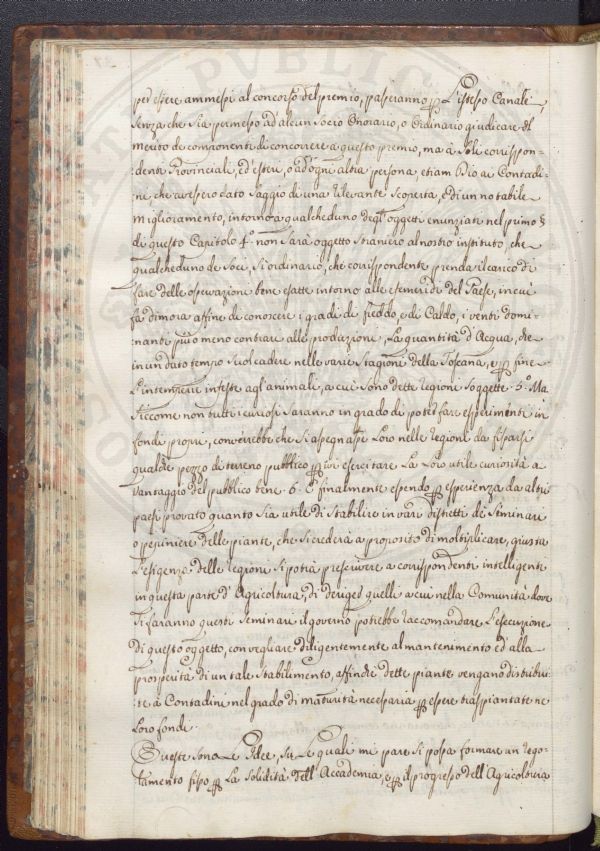 per essere ammessi al concorso del premio, passeranno per l'istesso Canale
senza che sia permesso ad alcun Socio Onorario, o Ordinario giudicare il
merito de componenti di concorrere a questo premio, ma à soli corrispon-
denti Provinciali, ed esteri, o ad ogni altra persona, etiam Dio ai Contadi-
ni, che avessero dato saggio di una rilevante Scoperta, e di un notabile
miglioramento, intorno a qualcheduno degl'oggetti enunziati nel primo §
di questo Capitolo 4.° non sarà oggetto straniero al nostro instituto, che
qualcheduno de Soci, si ordinario, che corrispondente prenda il carico di
fare delle osservazioni bene esatte intorno alle efemeridi del Paese, in cui
fa dimora affine di conoscere i gradi di freddo, e di Caldo, i venti domi-
nanti più o meno contrari alle produzioni, La quantità d'Acqua, che
in un dato tempo suol cadere nelle varie Stagioni della Toscana, e per fine
L'intemperie infeste agl'animali, a cui sono dette regioni soggette. 5.° Ma
siccome non tutti i curiosi saranno in grado di poter fare esperimenti in
fondi propri, converrebbe che si assegnasse Loro nelle regioni da fissarsi
qualche pezzo di terreno pubblico per ivi esercitare La Loro utile curiosità a
vantaggio del pubblico bene. 6. E finalmente essendo per esperienza da altri
paesi provato quanto sia utile di stabilire in vari distretti de Seminari
o pepiniere delle piante, che si crederà a proposito di moltiplicare, giusta
L'esigenza delle regioni si potrà prescrivere a corrispondenti intelligenti
in questa parte d'Agricoltura, di deriger quelli a cui nella Comunità dove
si faranno questi Seminari il governo potrebbe raccomandare L'esecuzione
di questo oggetto, con vegliare diligentemente al mantenimento ed alla
prosperità di un tale Stabilimento, affinchè dette piante vengano distribui-
te à Contadini nel grado di maturità necessaria per essere traspiantate ne
Loro fondi.
Queste sono Le Idee, su Le quali mi pare si possa formare un rego-
lamento fisso per La Solidità dell'Accademia, e per il progresso dell'Agricoltura